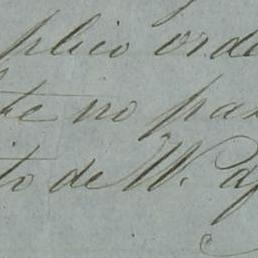 plico orde
te no pas
to de W. ap